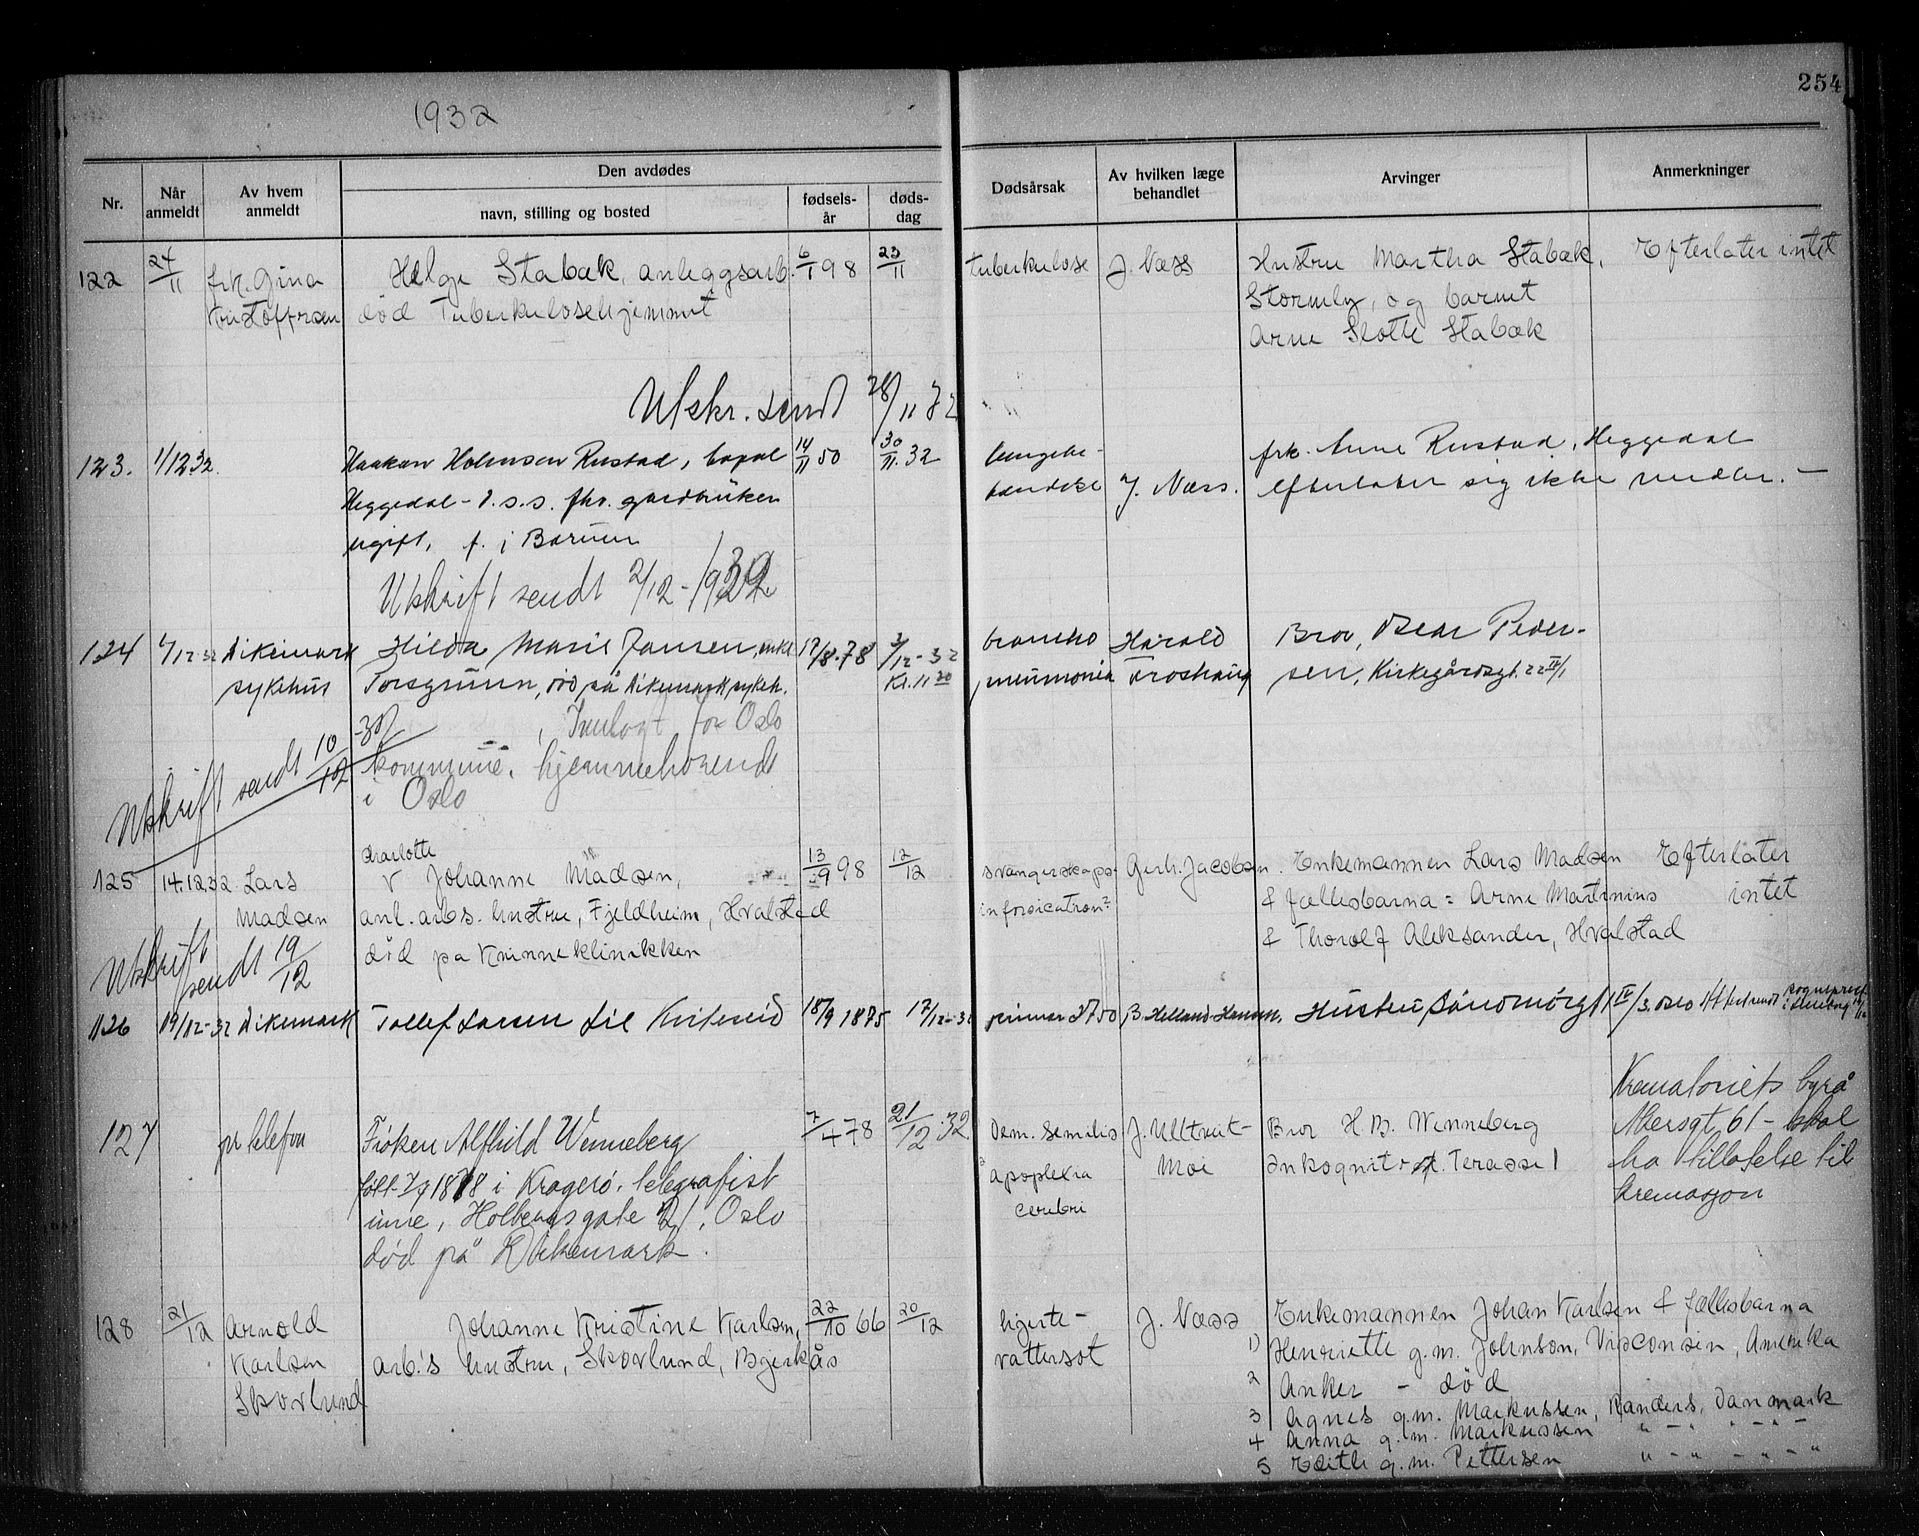 1932
254
Nr.
Når anmeldt
Av hvem anmeldt
Den avdødes
navn, stilling og bosted
fødsels-år
døds-dag
Dødsårsak
Av hvilken læge behandlet
Arvinger
Anmerkninger
122 24/11 frk. Gina Helge Stabæk, anleggsarb. 6/1 98 23/11 tuberkulose J. Næss Hustru Martha Stabæk, Efterlater intet
Kristoffersen død Tuberkulosehjemmet Stormly, og barnet
Arne Slotte Stabæk
Utskr. sendt 28/11 32
123. 1/12 32. Haakon Holmsen Rustad, Bopæl 14/11 50 30/11.32 lungebe- frk. Anne Rustad, Heggedal
Heggedal - d.s.s. fhv. gardbruker J. Næss. efterlater sig ikke midler. -
ugift, f. i Bærum
Utskrift sendt 2/12-1932
124 /12-32 Dikemark Hilda Marie Jansen, enke 17/8.78 /12-32 broncho Harald Bror, Oscar Peder-
sykehus Torsgrunn, død på Dikemark sykeh. Kl. 11 20 pneumonia Froshaug sen, Kirkegårdsgt. 22 II/1
, Innlagt for Oslo
kommune. hjemmehørende
i Oslo
Utskrift sendt 10/12-32
125 14.12.32 Lars Charlotte Johanne Madsen, 13/9 98 12/12 svangerskaps- Gerh. Jacobsen. Enkemannen Lars Madsen Efterlater
Madsen anl. arbs. hustru, Fjeldheim, Hvalstad intoxication? & fællesbarna = Arne Martinius intet
død på Kvinneklinikken & Thorolf Aleksander, Hvalstad
Utskrift sendt 19/12
126 19/12-32 Dikemark Tollef Larsen Lie Kviteseid 18/9 1875 17/12-32 B. Helland-Hansen, Hustru Oslo
127 pr telefon Frøken Alfhild Wenneberg 7/4 78 21/12.32 Dem. senilis J. Ulltveit- Bror H. B. Wenneberg Krematoriets byrå
født 7/4 1878 i Kragerø. telegrafist apoplexia Moe Inkognito Terasse 1 Akersgt, 61 - skal
inne, Holbergsgate 21, Oslo cerebri ha tillatelse til
død på Dikemark. kremasjon
128 21/12 Arnold Johanne Kristine Karlsen, 22/10 66 20/12 hjerte- J. Næss Enkemannen Johan Karlsen & fællesbarna
Karlsen arb.'s hustru, Skovlund, Bjerkås vattersot 1) Henriette g.m. Johnson, Visconsin, Amerika
Skovlund 2 Anker - død
3 Agnes g.m. Markussen, Randers, Danmark
4 Anna g.m. Markussen " - " - " -
5 Edith g.m. Pettersen " - " - " - "